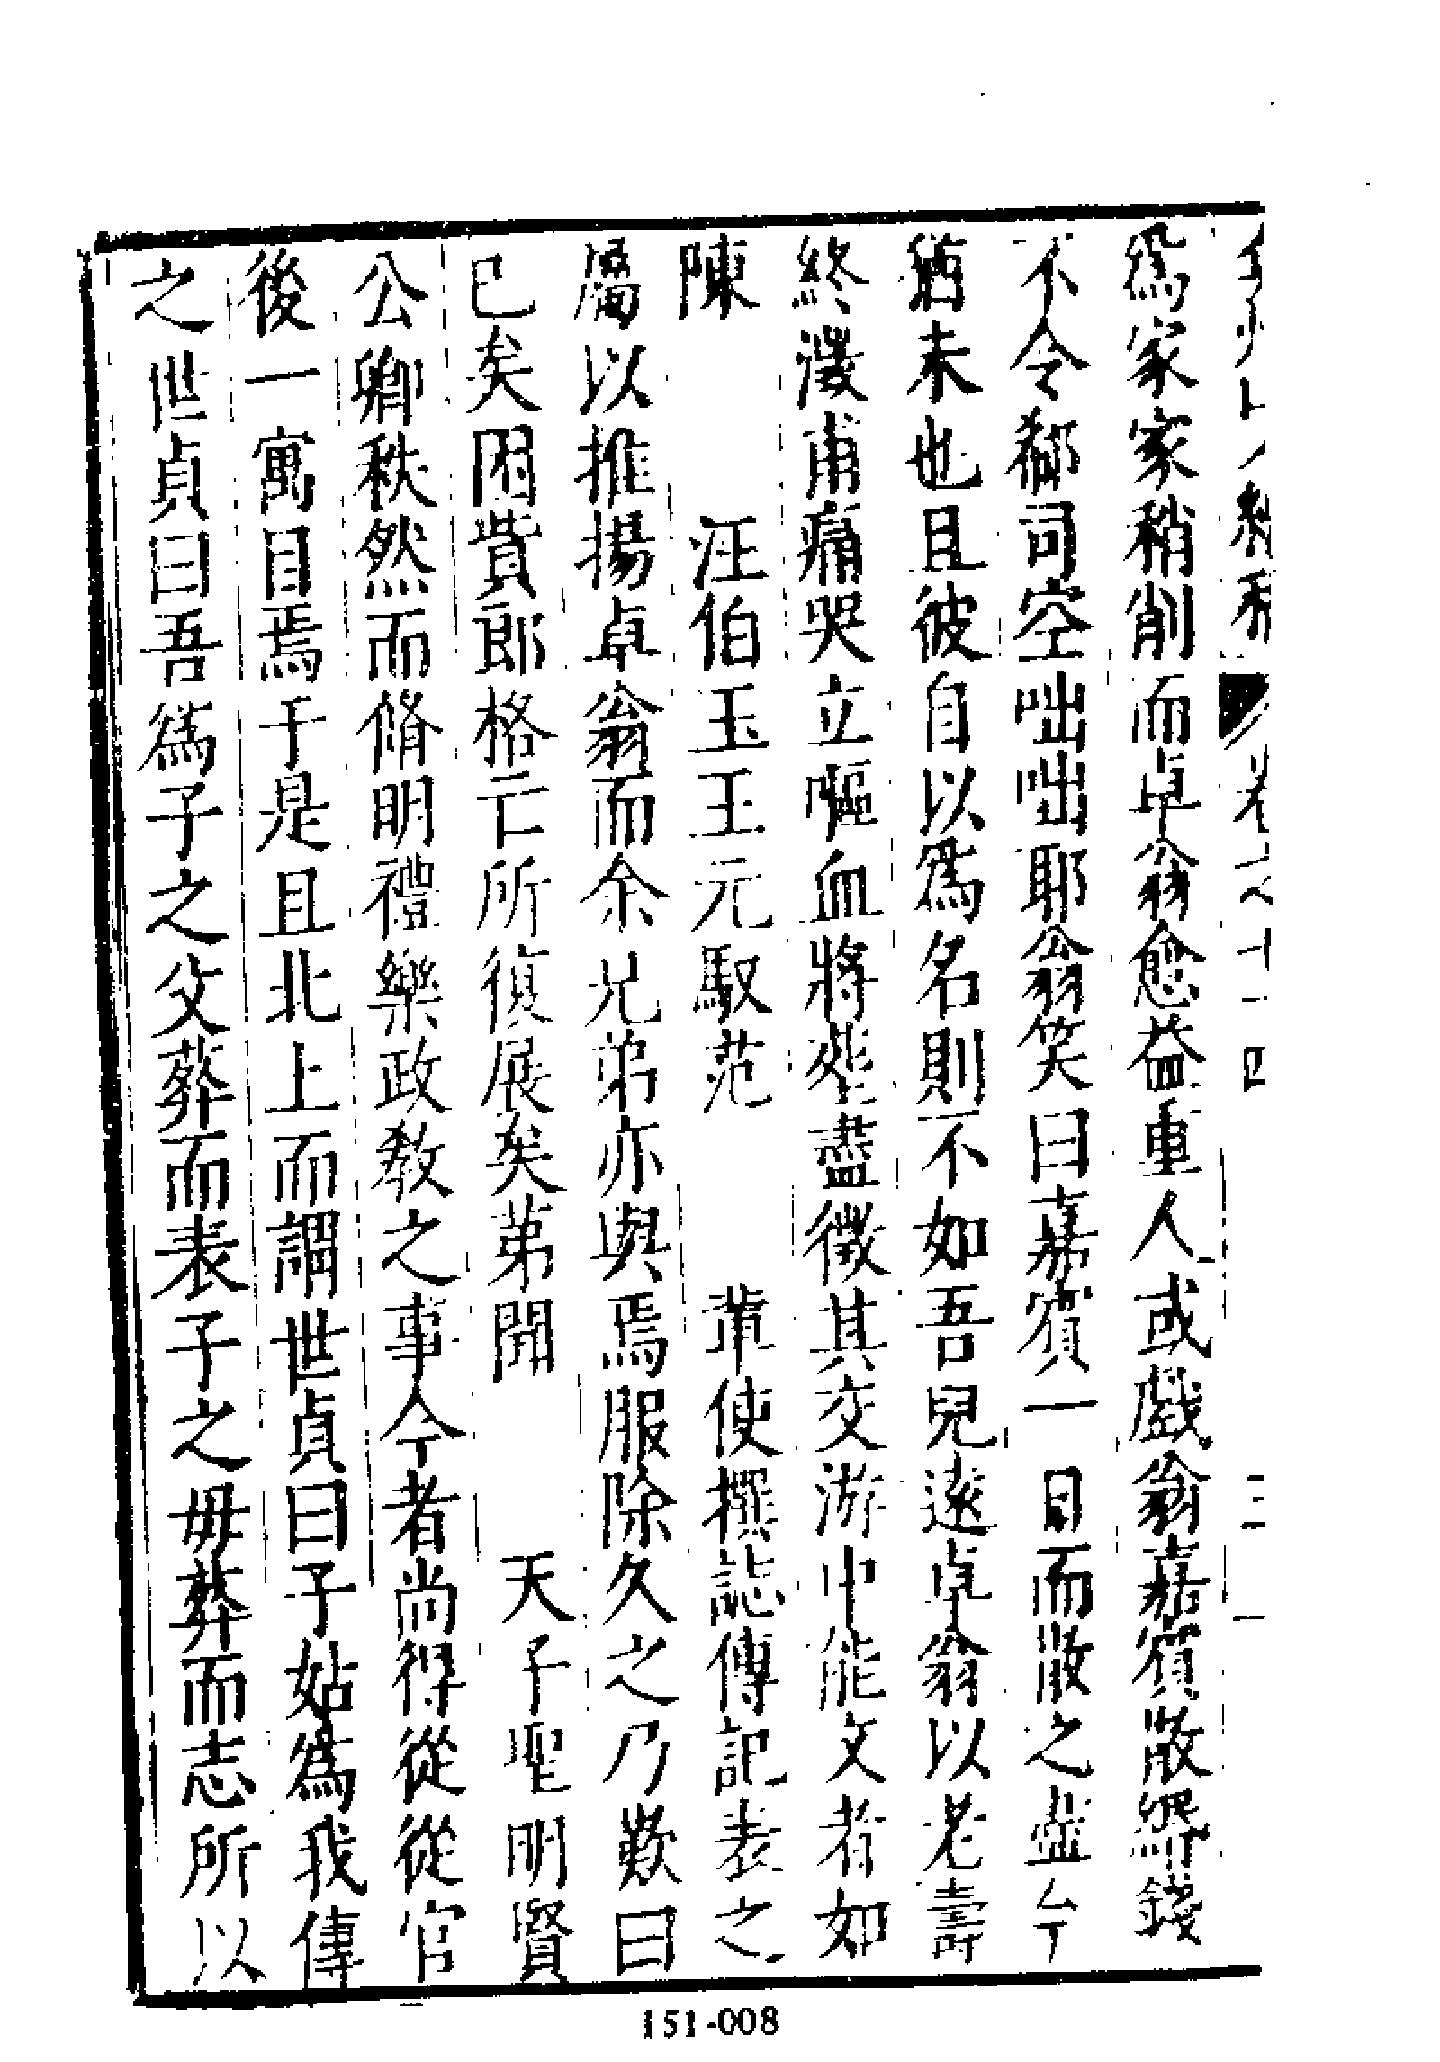 為家家稍削而卓翁愈益重人或戲翁嘉賓散緡錢
不令郗司空咄咄耶翁笑曰嘉賓一日而散之盡今
猶未也且彼自以為名則不如吾兒遠卓翁以老壽
終澂甫痛哭立嘔血將塋盡徵其交游中能文者如
陳 汪伯玉王元馭范 輩使撰誌傳記表之
屬以推揚卓翁而余兄弟亦與焉服除久之乃歎曰
已矣困貲郎格亡所復展矣第聞 天子聖明賢
公卿秩然而脩明禮樂政教之事今者尚得從從官
後一寓目焉于是且北上而謂世貞曰子姑為我傳
之世貞曰吾為子之父葬而表子之母葬而志所以
151-008